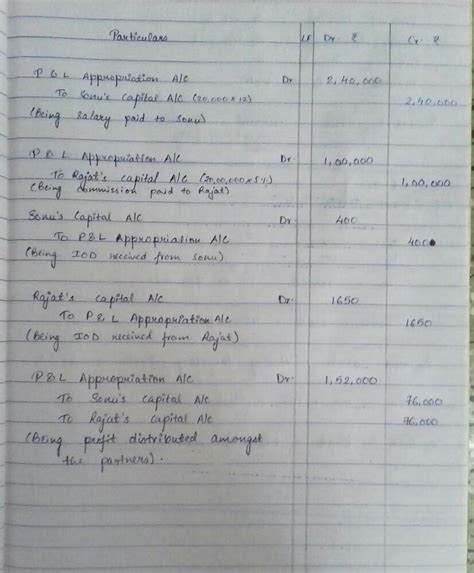 Particulars LF Dr. ₹ Cr. ₹
P & L Appropriation A/c Dr 2,40,000
To Sonu's Capital A/c (20,000 x 12) 2,40,000
(Being Salary paid to Sonu)
P & L Appropriation A/c Dr. 1,00,000
To Rajat's capital A/c (20,00,000 x 5%) 1,00,000
(Being commission paid to Rajat)
Sonu's Capital A/c Dr 400
To P & L Appropriation A/c 400
(Being IOD received from Sonu)
Rajat's capital A/c Dr. 1650
To P & L Appropriation A/c 1650
(Being IOD received from Rajat)
P & L Appropriation A/c Dr. 1,52,000
To Sonu's Capital A/c 76,000
To Rajat's Capital A/c 76,000
(Being profit distributed amongst
the partners).